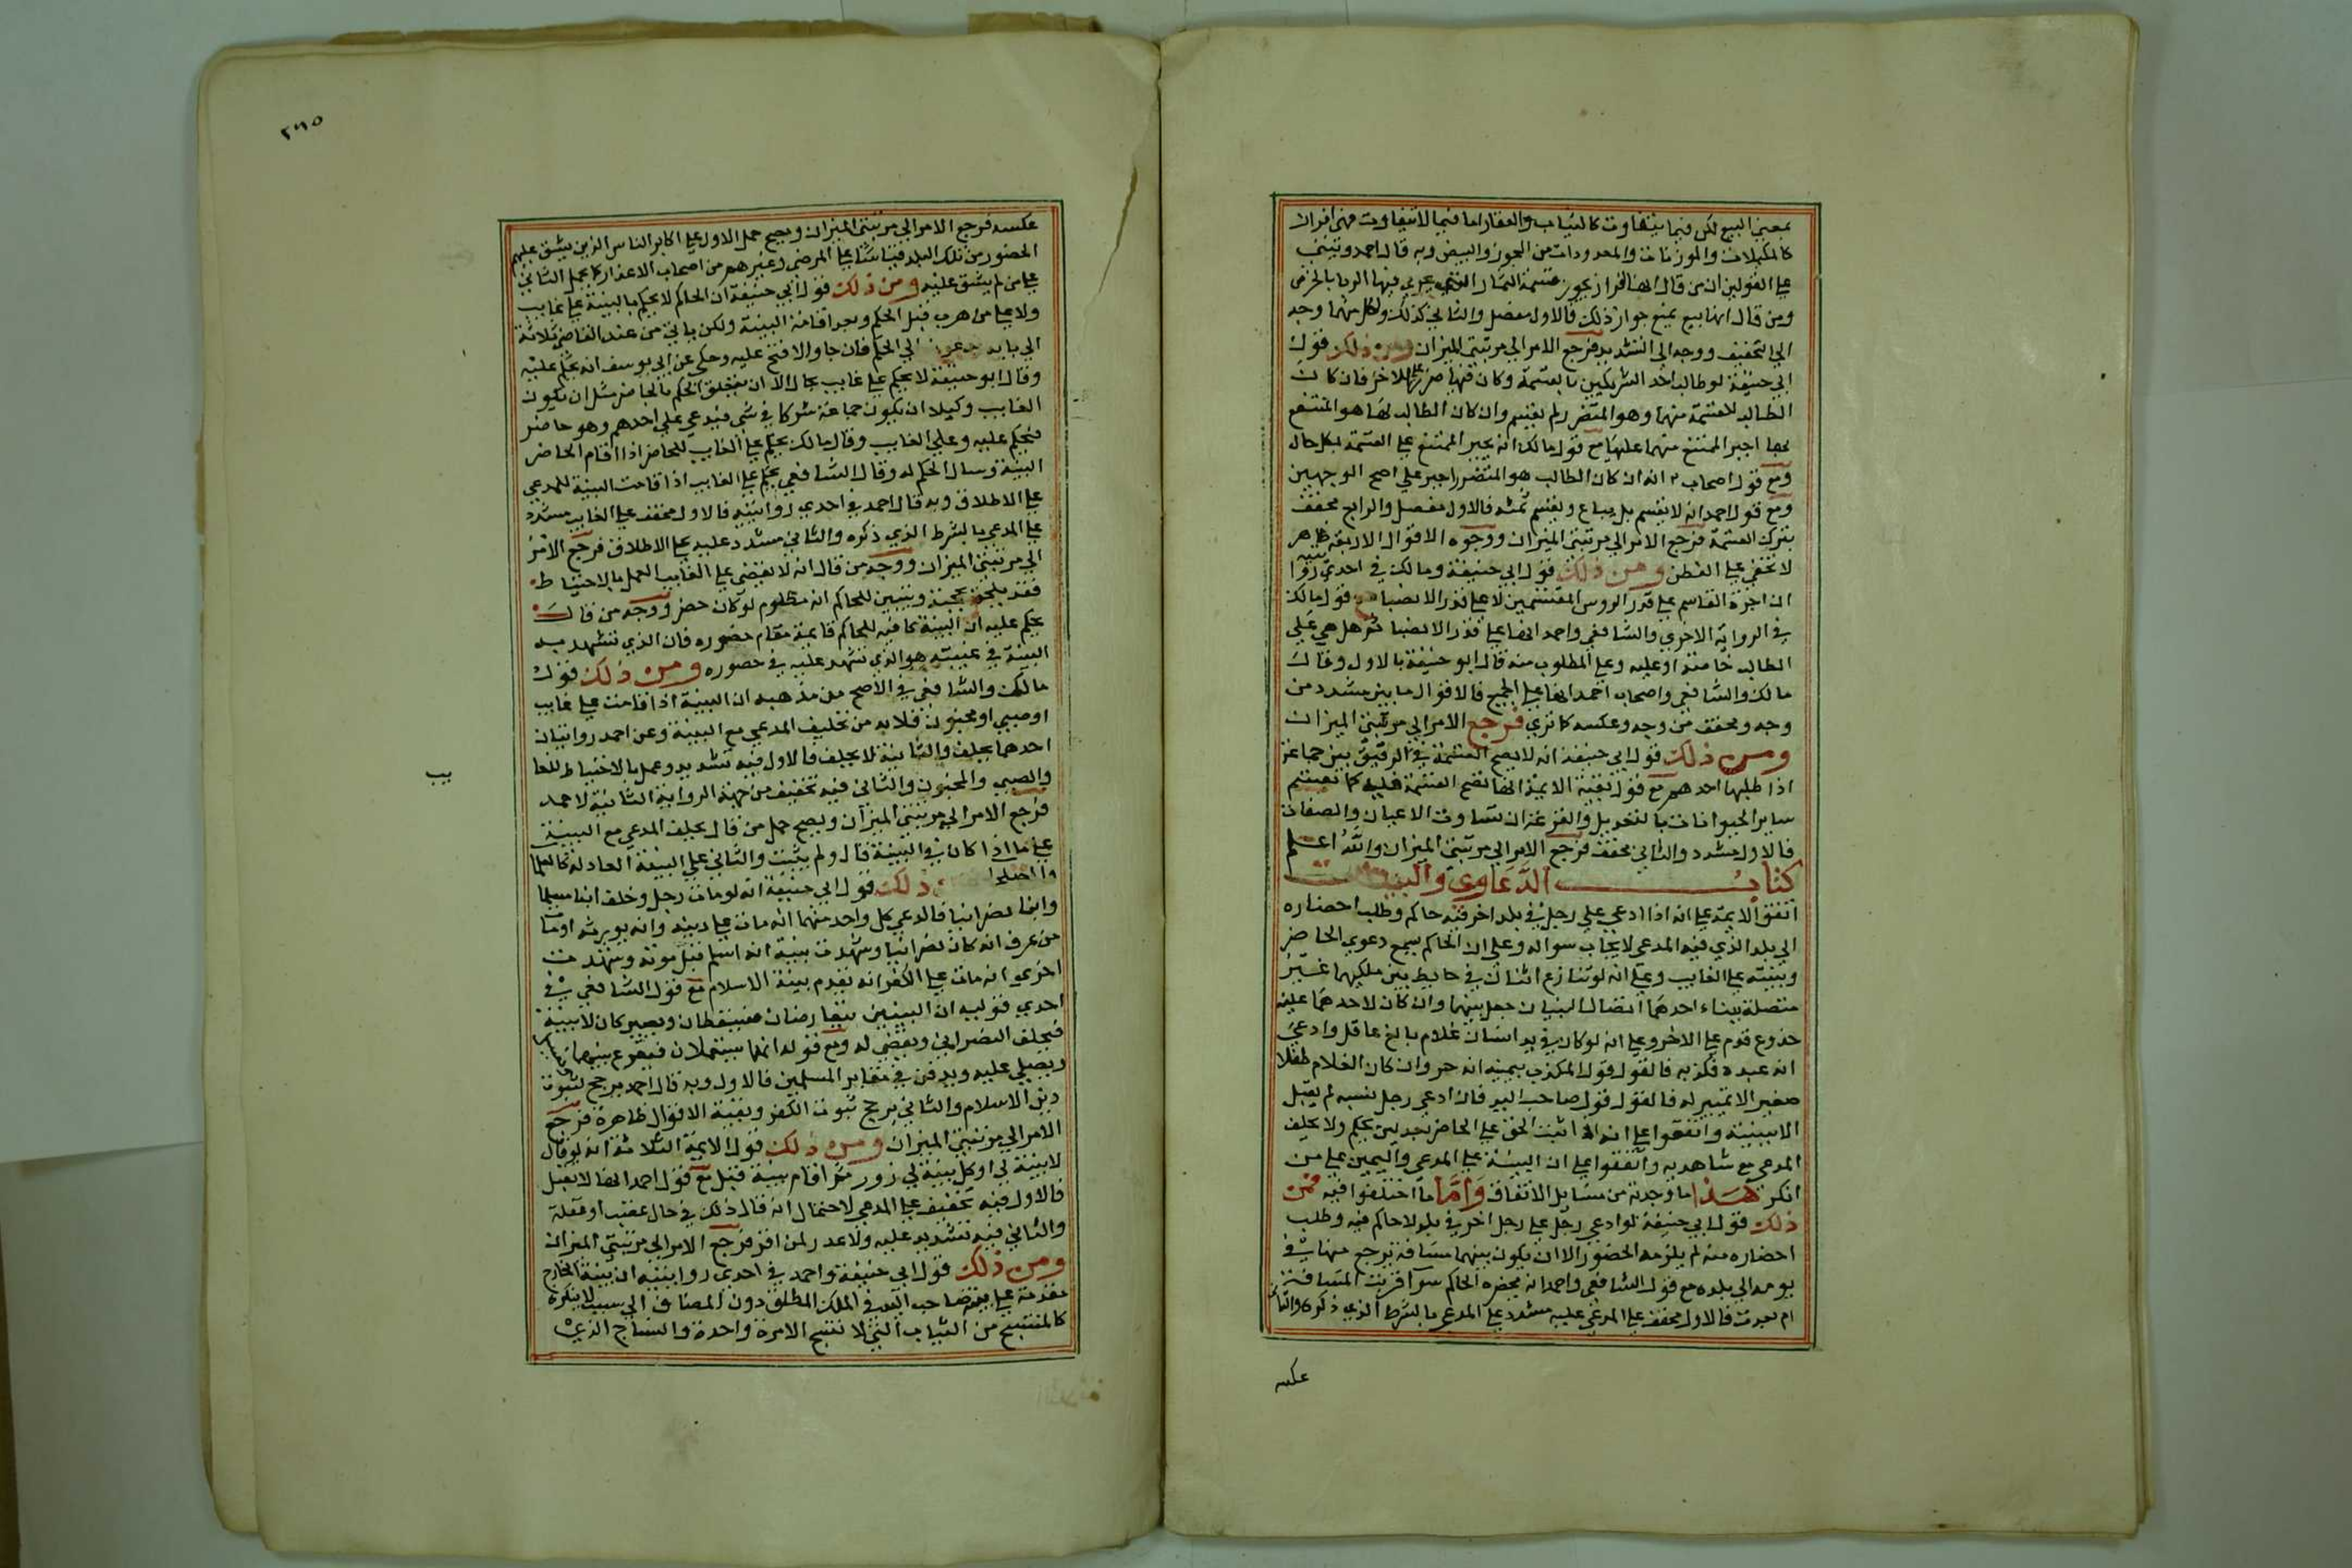 بمعني البيع لكن فيما يتفاوت كالثياب والعقار اما فيما لا يتفاوت فهي افراز
كالمكيلات والموزونات والمعدودات من الجوز والبيض وبه قال احمد وينبني
علي القولين ان من قال انها افراز يجوز قسمة الثمار التي يجري فيها الربا بالخرص
ومن قال انها بيع يمنع جواز ذلك فالاول مفصل والثاني كذلك ولكل منهما وجه
الي التخفيف ووجه الي التشديد فرجع الامر الي مرتبتي الميزان ومن ذلك قول
ابي حنيفة لو طالب احد الشريكين بالقسمة وكان فيها ضرر علي الاخر فان كان
الطالب للقسمة منهما وهو المتضرر لم يقسم وان كان الطالب لها هو المنتفع
بها اجبر الممتنع منهما عليها مع قول مالك انه يجبر الممتنع علي القسمة بكل حال
ومع قول اصحاب انه ان كان الطالب هو المتضرر اجبر علي اصح الوجهين
ومع قول احمد انه لا يقسم بل يباع ويقسم ثمنه فالاول مفصل والرابع مخفف
بترك القسمة فرجع الامر الي مرتبتي الميزان ووجوه الاقوال الاربعة ظاهر
لا تخفي علي الفطن ومن ذلك قول ابي حنيفة ومالك في احدي روايتيه
ان اجرة القاسم علي قدر الروس المقتسمين لا علي قدر الانصبا مع قول مالك
في الرواية الاخري والشافعي واحمد انها علي قدر الانصبا ثم هل هي علي
الطالب خاصة او عليه وعلي المطلوب منه قال ابو حنيفة بالاول وقال
مالك والشافعي واصحاب احمد انها علي الجميع فالاقوال ما بين مشدد من
وجه ومخفف من وجه وعكسه كما تري فرجع الامر الي مرتبتي الميزان
ومن ذلك قول ابي حنيفة انه لا يصح القسمة في الرقيق بين جماعة
اذا طلبها احدهم مع قول بقية الايمة انها تصح القسمة فيه كما تقسم
ساير الحيوانات بالتعديل والقرعة ان تساوت الاعيان والصفات
فالاول مشدد والثاني مخفف فرجع الامر الي مرتبتي الميزان والله اعلم
كتاب الدعاوي والبينات
اتفق الايمة علي انه اذا ادعي علي رجل في بلد اخر فيه حاكم وطلب احضاره
الي بلد الذي فيه المدعي لا يجاب سواله وعلي ان الحاكم يسمع دعوي الحاضر
وبينته علي الغايب وعلي انه لو تنازع اثنان في حايط بين ملكيهما غير
متصلة ببناء احدهما اتصال البنيان جعل بينهما وان كان لاحدهما عليه
جذوع قدم علي الاخر وعلي انه لو كان في يد انسان غلام بالغ عاقل وادعي
انه عبده فكذبه فالقول قول المكذب بيمينه انه حر وان كان الغلام طفلا
صغير لا تمييز له فالقول قول صاحب اليد فان ادعي رجل نسبه لم يقبل
الا ببينة واتفقوا علي انه اذا ثبت الحق علي الحاضر بعدلين يحكم ولا يحلف
المدعي مع شاهديه واتفقوا علي ان البينة علي المدعي واليمين علي من
انكر هذا ما وجدته من مسايل الاتفاق واما ما اختلفوا فيه فمن
ذلك قول ابي حنيفة لو ادعي رجل علي رجل اخر في بلد لا حاكم فيه وطلب
احضاره منه لم يلزمه الحضور الا ان يكون بينهما مسافة يرجع منها في
يومه الي بلده مع قول الشافعي واحمد انه يحضره الحاكم سوا قربت المسافة
ام بعدت فالاول مخفف علي المدعي عليه مشدد علي المدعي بالشرط الذي ذكره والثاني
عكسه
٢٦٥
عكسه فرجع الامر الي مرتبتي الميزان ويصح حمل الاول علي اكابر الناس الذين يشق عليهم
الحضور من تلك البلد قياسا علي المرضي وغيرهم من اصحاب الاعذار كما يحمل الثاني
علي من لم يشق عليه ومن ذلك قول ابي حنيفة ان الحاكم لا يحكم بالبينة علي غايب
ولا علي من هرب قبل الحكم وبعد اقامة البينة ولكن ياتي من عند القاضي ثلاثة
الي بابه الي الحكم فان جا والا فتح عليه وحكي عن ابي يوسف انه يحكم عليه
وقال ابو حنيفة لا يحكم علي غايب بحال الا ان يتعلق الحكم بالحاضر مثل ان يكون
الغايب وكيلا ان يكون جماعة شركا في شي فيدعي علي احدهم وهو حاضر
فيحكم عليه وعلي الغايب وقال مالك يحكم علي الغايب للحاضر اذا اقام الحاضر
البينة وسال الحكم له وقال الشافعي يحكم علي الغايب اذا قامت البينة للمدعي
علي الاطلاق وبه قال احمد في احدي روايتيه فالاول مخفف علي الغايب مشدد
علي المدعي بالشرط الذي ذكره والثاني مشدد عليه علي الاطلاق فرجع الامر
الي مرتبتي الميزان ووجه من قال انه لا يقضي علي الغايب العمل بالاحتياط
فقد يلحن بحجته ويتبين للحاكم انه مظلوم لو كان حضر ووجه من قال
يحكم عليه ان البينة كافية للحاكم قايمة مقام حضوره فان الذي تشهد به
البينة في غيبته هو الذي تشهد عليه في حضوره ومن ذلك قول
مالك والشافعي في الاصح من مذهبه ان البينة اذا قامت علي غايب
او صبي او مجنون فلا بد من تحليف المدعي مع البينة وعن احمد روايتان
احدهما يحلف والثانية لا يحلف فالاول فيه تشديد وعمل بالاحتياط للغا
يب
والصبي والمجنون والثاني فيه تخفيف من جهة الرواية الثانية لاحمد
فرجع الامر الي مرتبتي الميزان ويصح حمل من قال يحلف المدعي مع البينة
علي ما اذا كان في البينة قال ولم يثبت والثاني علي البينة العادلة كالعلما
والصلحا ومن ذلك قول ابي حنيفة انه لو مات رجل وخلف ابنا مسلما
وابنا نصرانيا فادعي كل واحد منهما انه مات علي دينه وانه يورثه اوما
من عرف انه كان نصرانيا وشهدت بينة انه اسلم قبل موته وشهدت
اخري انه مات علي الكفر انه يقدم بينة الاسلام مع قول الشافعي في
احدي قوليه ان البينتين يتعارضان فيسقطان ويصير كان لا بينة
فيحلف النصراني ويقضي له ومع قوله انهما يستعملان فيقرع بينهما
ويصلي عليه ويدفن في مقابر المسلمين فالاول وبه قال احمد يرجح ثبوت
دين الاسلام والثاني يرجح ثبوت الكفر وبقية الاقوال ظاهرة فرجع
الامر الي مرتبتي الميزان ومن ذلك قول الايمة الثلاثة انه لو قال
لا بينة لي او كل بينة لي زور ثم اقام بينة قبل مع قول احمد انها لا تقبل
فالاول فيه تخفيف علي المدعي لاحتمال انه قال ذلك في حال غضب او غفلة
والثاني فيه تشديد عليه ولا عذر لمن اقر فرجع الامر الي مرتبتي الميزان
ومن ذلك قول ابي حنيفة واحمد في احدي روايتيه ان بينة الخارج
مقدمة علي بينة صاحب اليد في الملك المطلق دون المضاف الي سبب لا يتكرر
كالمنتسج من الثياب التي لا تنسج الا مرة واحدة والنتاج الذي